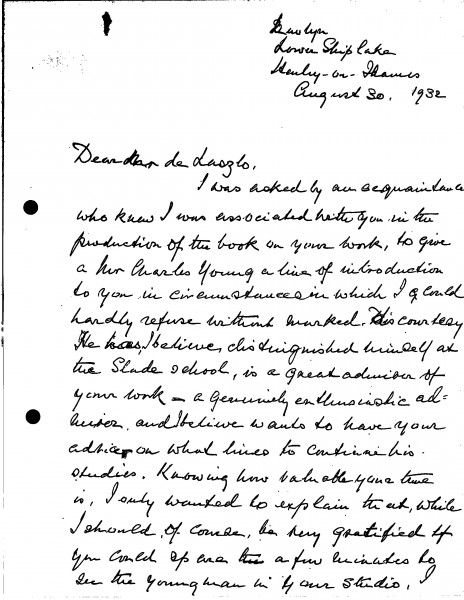 Lower Shiplake
Henley-on-Thames
August 30. 1932
Dear Mr de Laszlo,
I was asked by an acquaintance
who knew I was associated with you in the
production of the book on your work, to give
a Mr Charles Young a line of introduction
to you in circumstances in which I could
hardly refuse without marked discourtesy
He has, I believe, distinguished himself at
the Slade school, is a great admirer of
your work - a genuinely enthusiastic ad-
mirer, and I believe wants to have your
advice on what lines to continue his
studies. Knowing how valuable your time
is, I only wanted to explain that, while
I should, of course, be very gratified if
you could spare him a few minutes to
see the young man in your studio, I